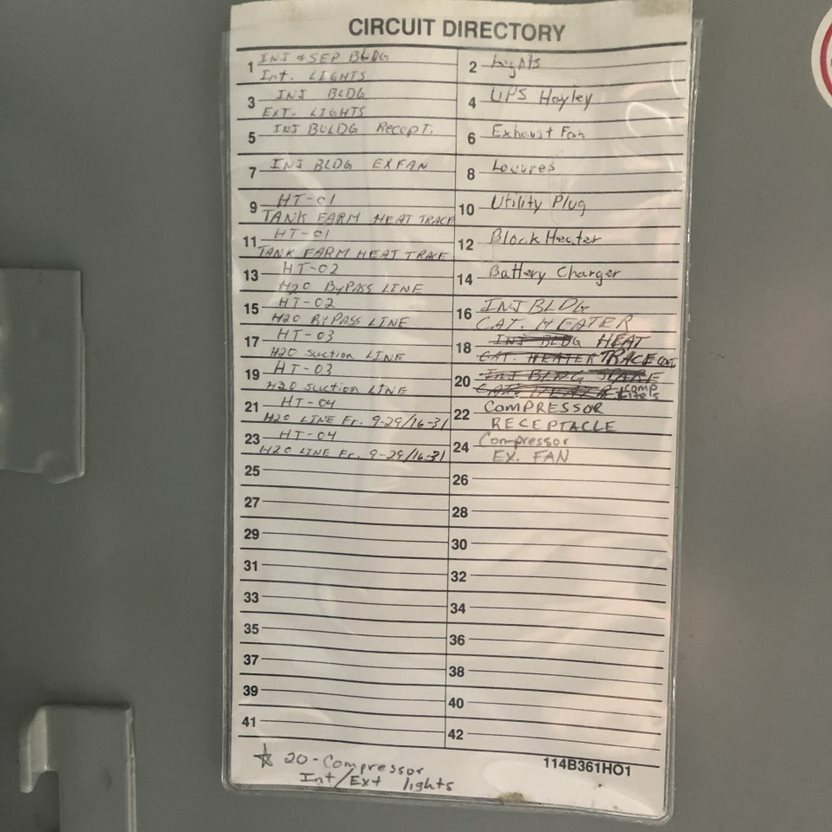 CIRCUIT DIRECTORY
1 INJ & SEP BLDG
Int. LIGHTS
2 Lights
3 INJ BLDG
EXT. LIGHTS
4 UPS Hayley
5 INJ BULDG Recept.
6 Exhaust Fan
7 INJ BLDG EXFAN
8 Louvres
9 HT-01
TANK FARM HEAT TRACE
10 Utility Plug
11 HT-01
TANK FARM HEAT TRACE
12 Block Heater
13 HT-02
H2O ByPASS LINE
14 Battery Charger
15 HT-02
H2O BYPASS LINE
16 INJ BLDG
CAT. HEATER
17 HT-03
H2O Suction LINE
18 INJ BLDG HEAT
CAT. HEATER TRACE
19 HT-03
H2O Suction LINE
20 INJ BLDG SPARE
CAT. HEATER comp
21 HT-04
H2O LINE Fr. 9-29/16-31
22 COMPRESSOR
RECEPTACLE
23 HT-04
H2O LINE Fr. 9-29/16-31
24 Compressor
EX. FAN
25
26
27
28
29
30
31
32
33
34
35
36
37
38
39
40
41
42
114B361HO1
☆ 20-Compressor
Int/Ext lights